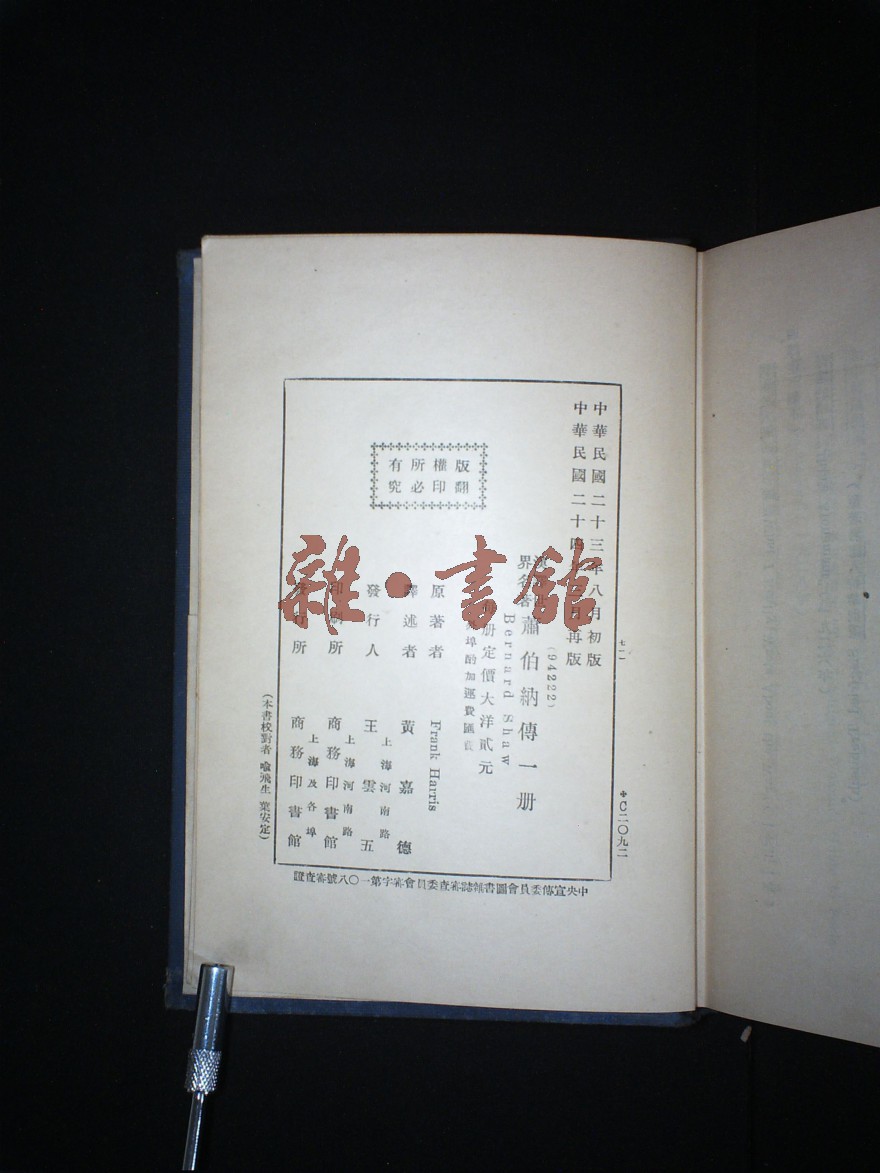 中華民國二十三年八月初版
中華民國二十四年三月再版
(94222)
漢譯世
界名著
蕭伯納傳一册
Bernard Shaw
册定價大洋貳元
埠酌加運費匯費
原著者 Frank Harris
譯述者 黃嘉德
上海河南路
發行人 王雲五
上海河南路
印刷所 商務印書館
上海及各埠
發行所 商務印書館
版權所有
翻印必究
(本書校對者 喻飛生 葉安定)
七一一
❖C二〇九二
中央宣傳委員會圖書雜誌審查委員會審字第一〇八號審查證
雜·書館